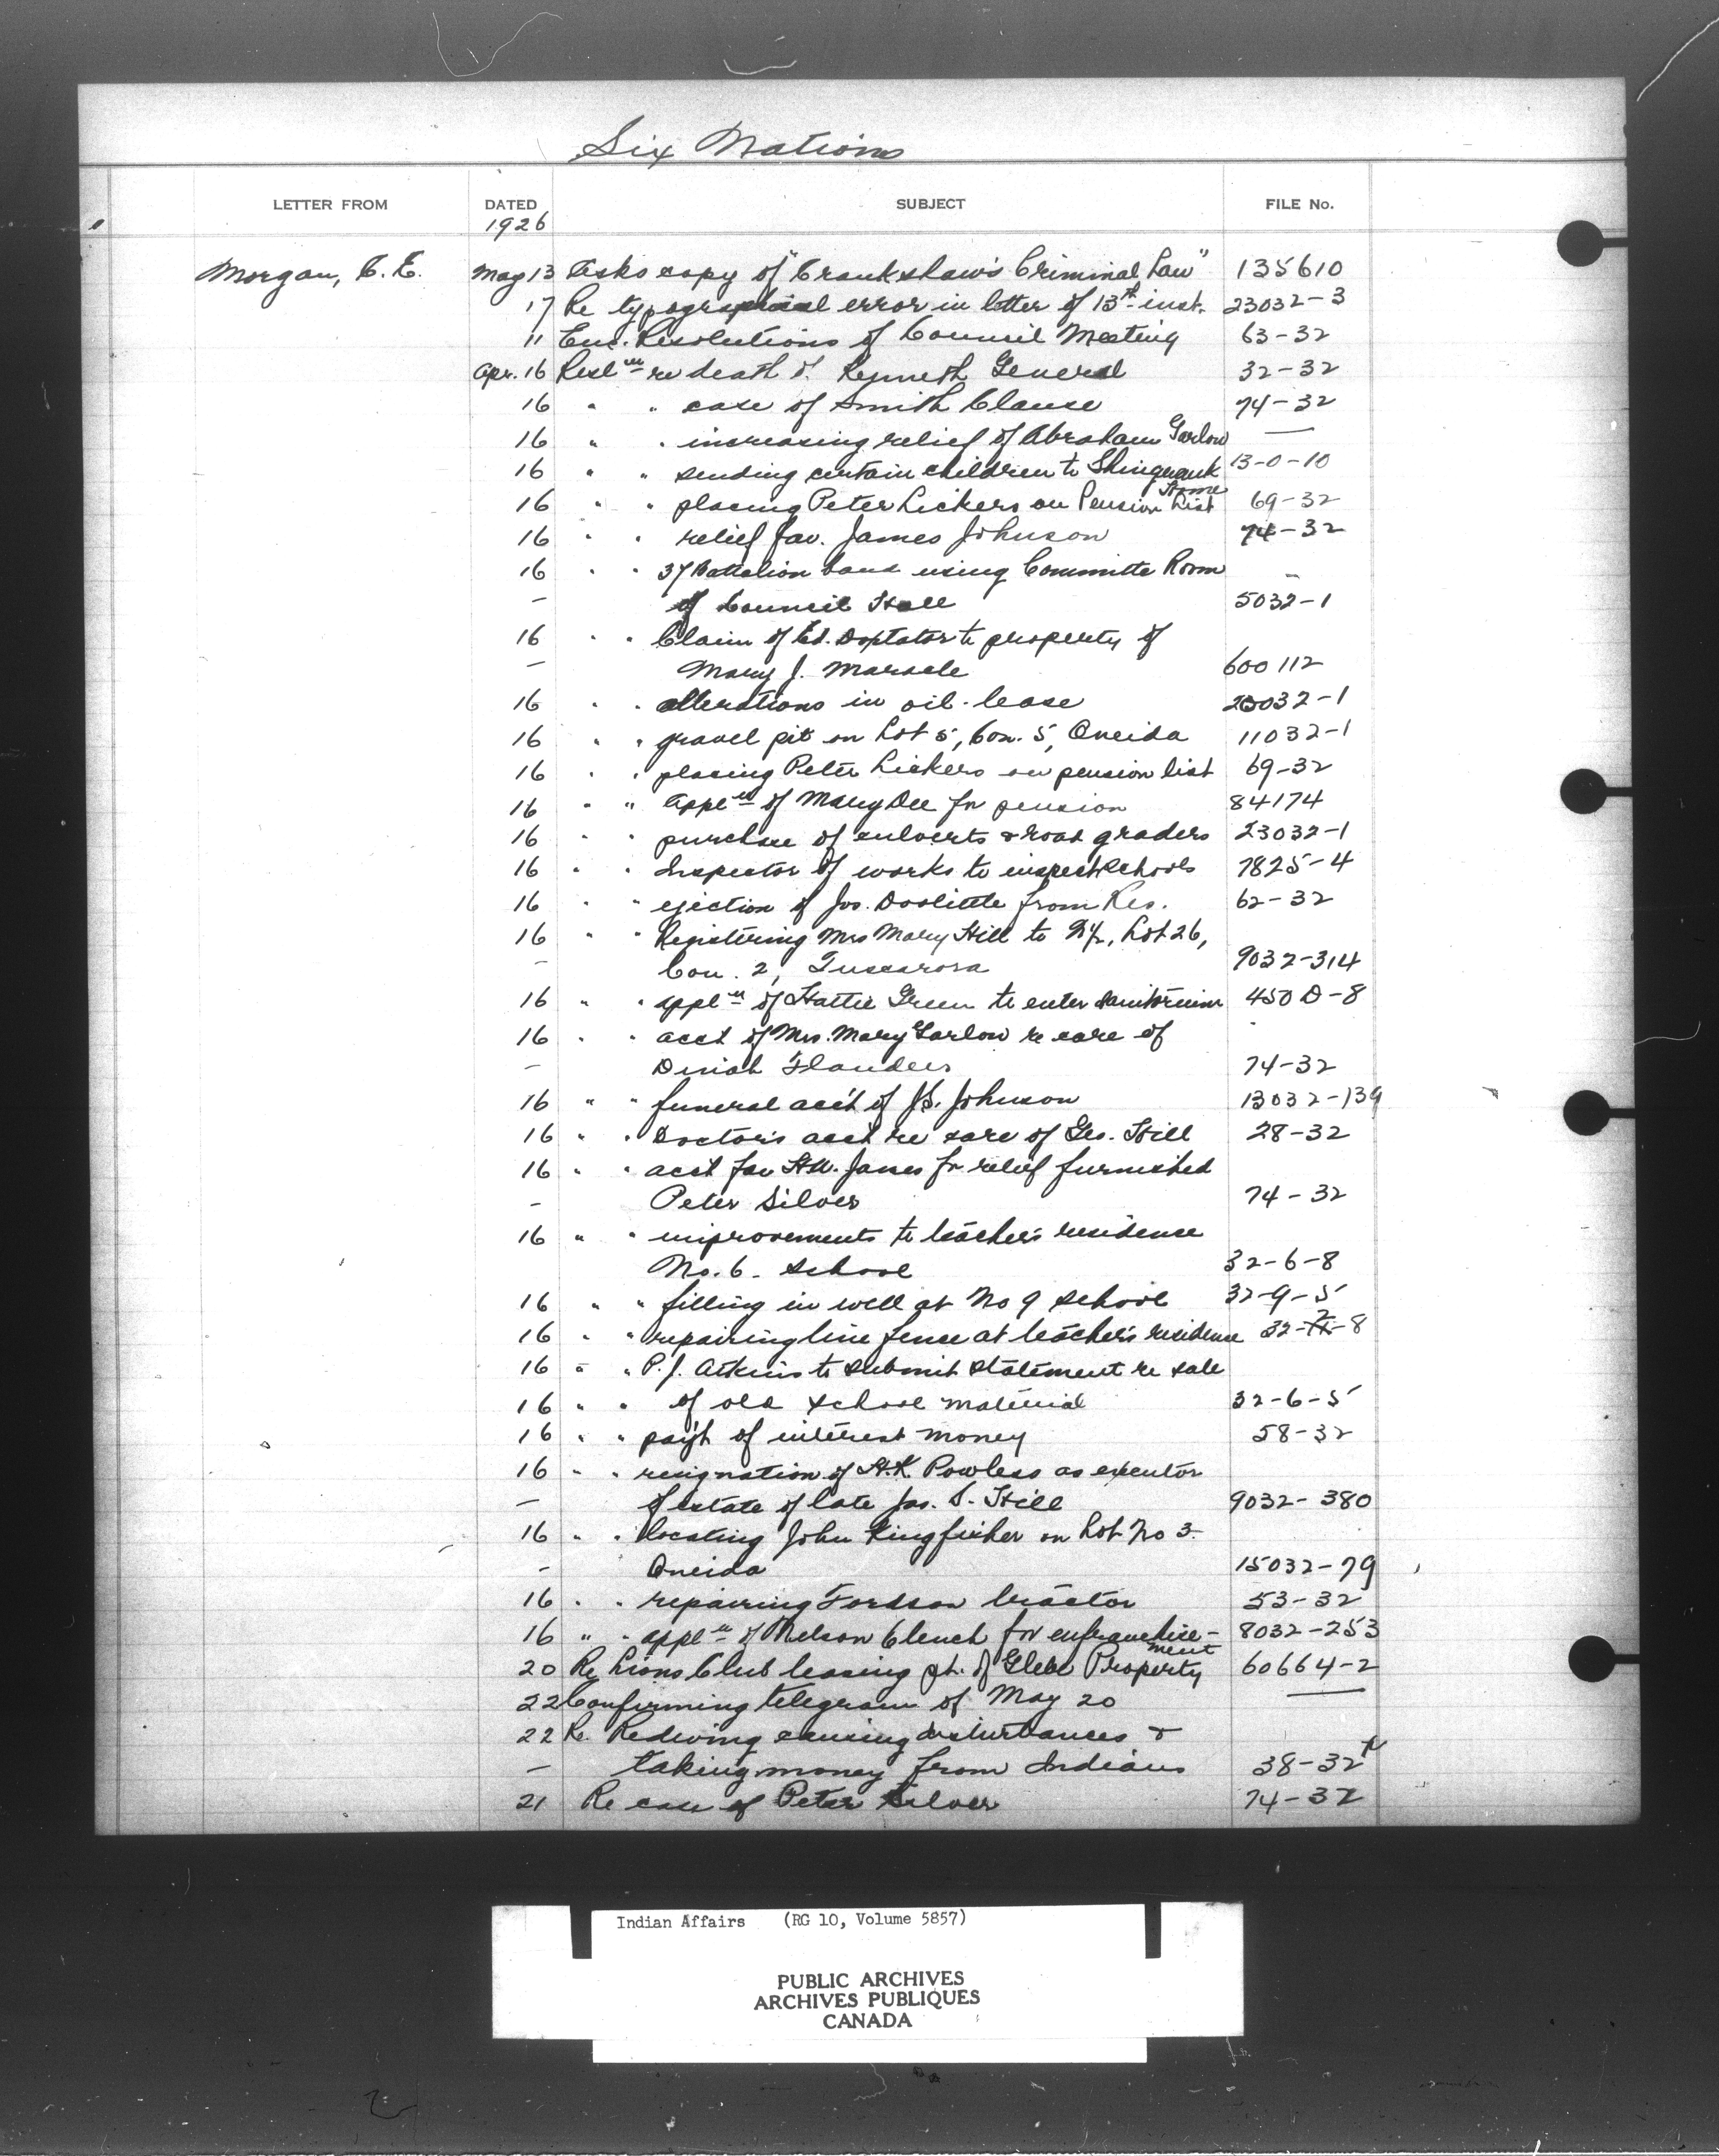 Six Nations
LETTER FROM DATED SUBJECT FILE No.
1926
Morgan, C. E. May 13 Asks copy of "Crankshaw's Criminal Law" 135610
17 Re typographical error in letter of 13th inst. 23032-3
11 Enc. Resolutions of Council Meeting 63-32
Apr. 16 Resln re death of Kenneth General 32-32
16 " " case of Smith Clause 74-32
16 " " increasing relief of Abraham Garlow —
16 " " sending certain children to Shingwauk Home 13-0-10
16 " " placing Peter Lickers on Pension List 69-32
16 " " relief fav. James Johnson 74-32
16 " " 37 Battalion band using Committe Room
– of Council Hall 5032-1
16 " " Claim of Ed. Doxtator to property of
– Mary J. Maracle 600112
16 " " alterations in oil lease 20032-1
16 " " gravel pit on Lot 5, Con. 5, Oneida 11032-1
16 " " placing Peter Lickers on pension list 69-32
16 " " appln of Mary Dee for pension 84174
16 " " purchase of culverts & road graders 23032-1
16 " " Inspector of works to inspect schools 7825-4
16 " " ejection of Jos. Doolittle from Res. 62-32
16 " " Registering Mrs Mary Hill to 1/2, Lot 26,
– Con. 2, Tuscarora 9032-314
16 " " appln of Hattie Green to enter sanitorium 450 D-8
16 " " acct of Mrs. Mary Garlow re care of
– Dinah Flanders 74-32
16 " " funeral acc't of J.S. Johnson 13032-139
16 " " Doctor's acct re care of Geo. Hill 28-32
16 " " acct fav H.W. James for relief furnished
– Peter Silver 74-32
16 " " improvements to teacher's residence
No. 6 - School 32-6-8
16 " " filling in well at No 9 school 32-9-5
16 " " repairing line fence at teacher's residence 32-2-8
16 " " P.J. Atkins to submit statement re sale
16 " " of old school material 32-6-5
16 " " pay't of interest money 58-32
16 " " resignation of H.K. Powless as executor
– of estate of late Jas. S. Hill 9032-380
16 " " locating John Kingfisher on Lot No 3.
– Oneida 15032-79
16 " " repairing Fordson tractor 53-32
16 " " appln of Nelson Clench for enfranchise-ment 8032-253
20 Re Lions Club leasing pt. of Glebe Property 60664-2
22 Confirming telegram of May 20 —
22 Re. Redwing causing disturbances &
– taking money from Indians 38-32
21 Re case of Peter Silver 74-32
Indian Affairs (RG 10, Volume 5857)
PUBLIC ARCHIVES
ARCHIVES PUBLIQUES
CANADA